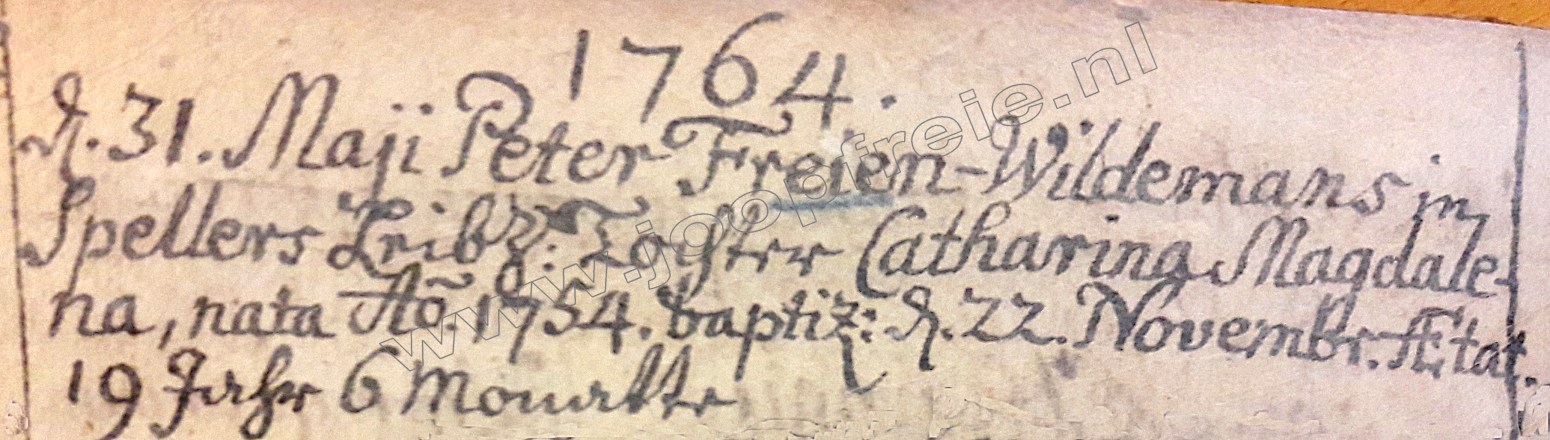 1764.
d. 31. Maji Peter Freien-Wildemans in
Spellers Leibz: Tochter Catharina Magdale-
na, nata Aō. 1754. baptiz: d. 22. Novembr. Ætat.
19 Jahr 6 Monatte
www.joopfreie.nl